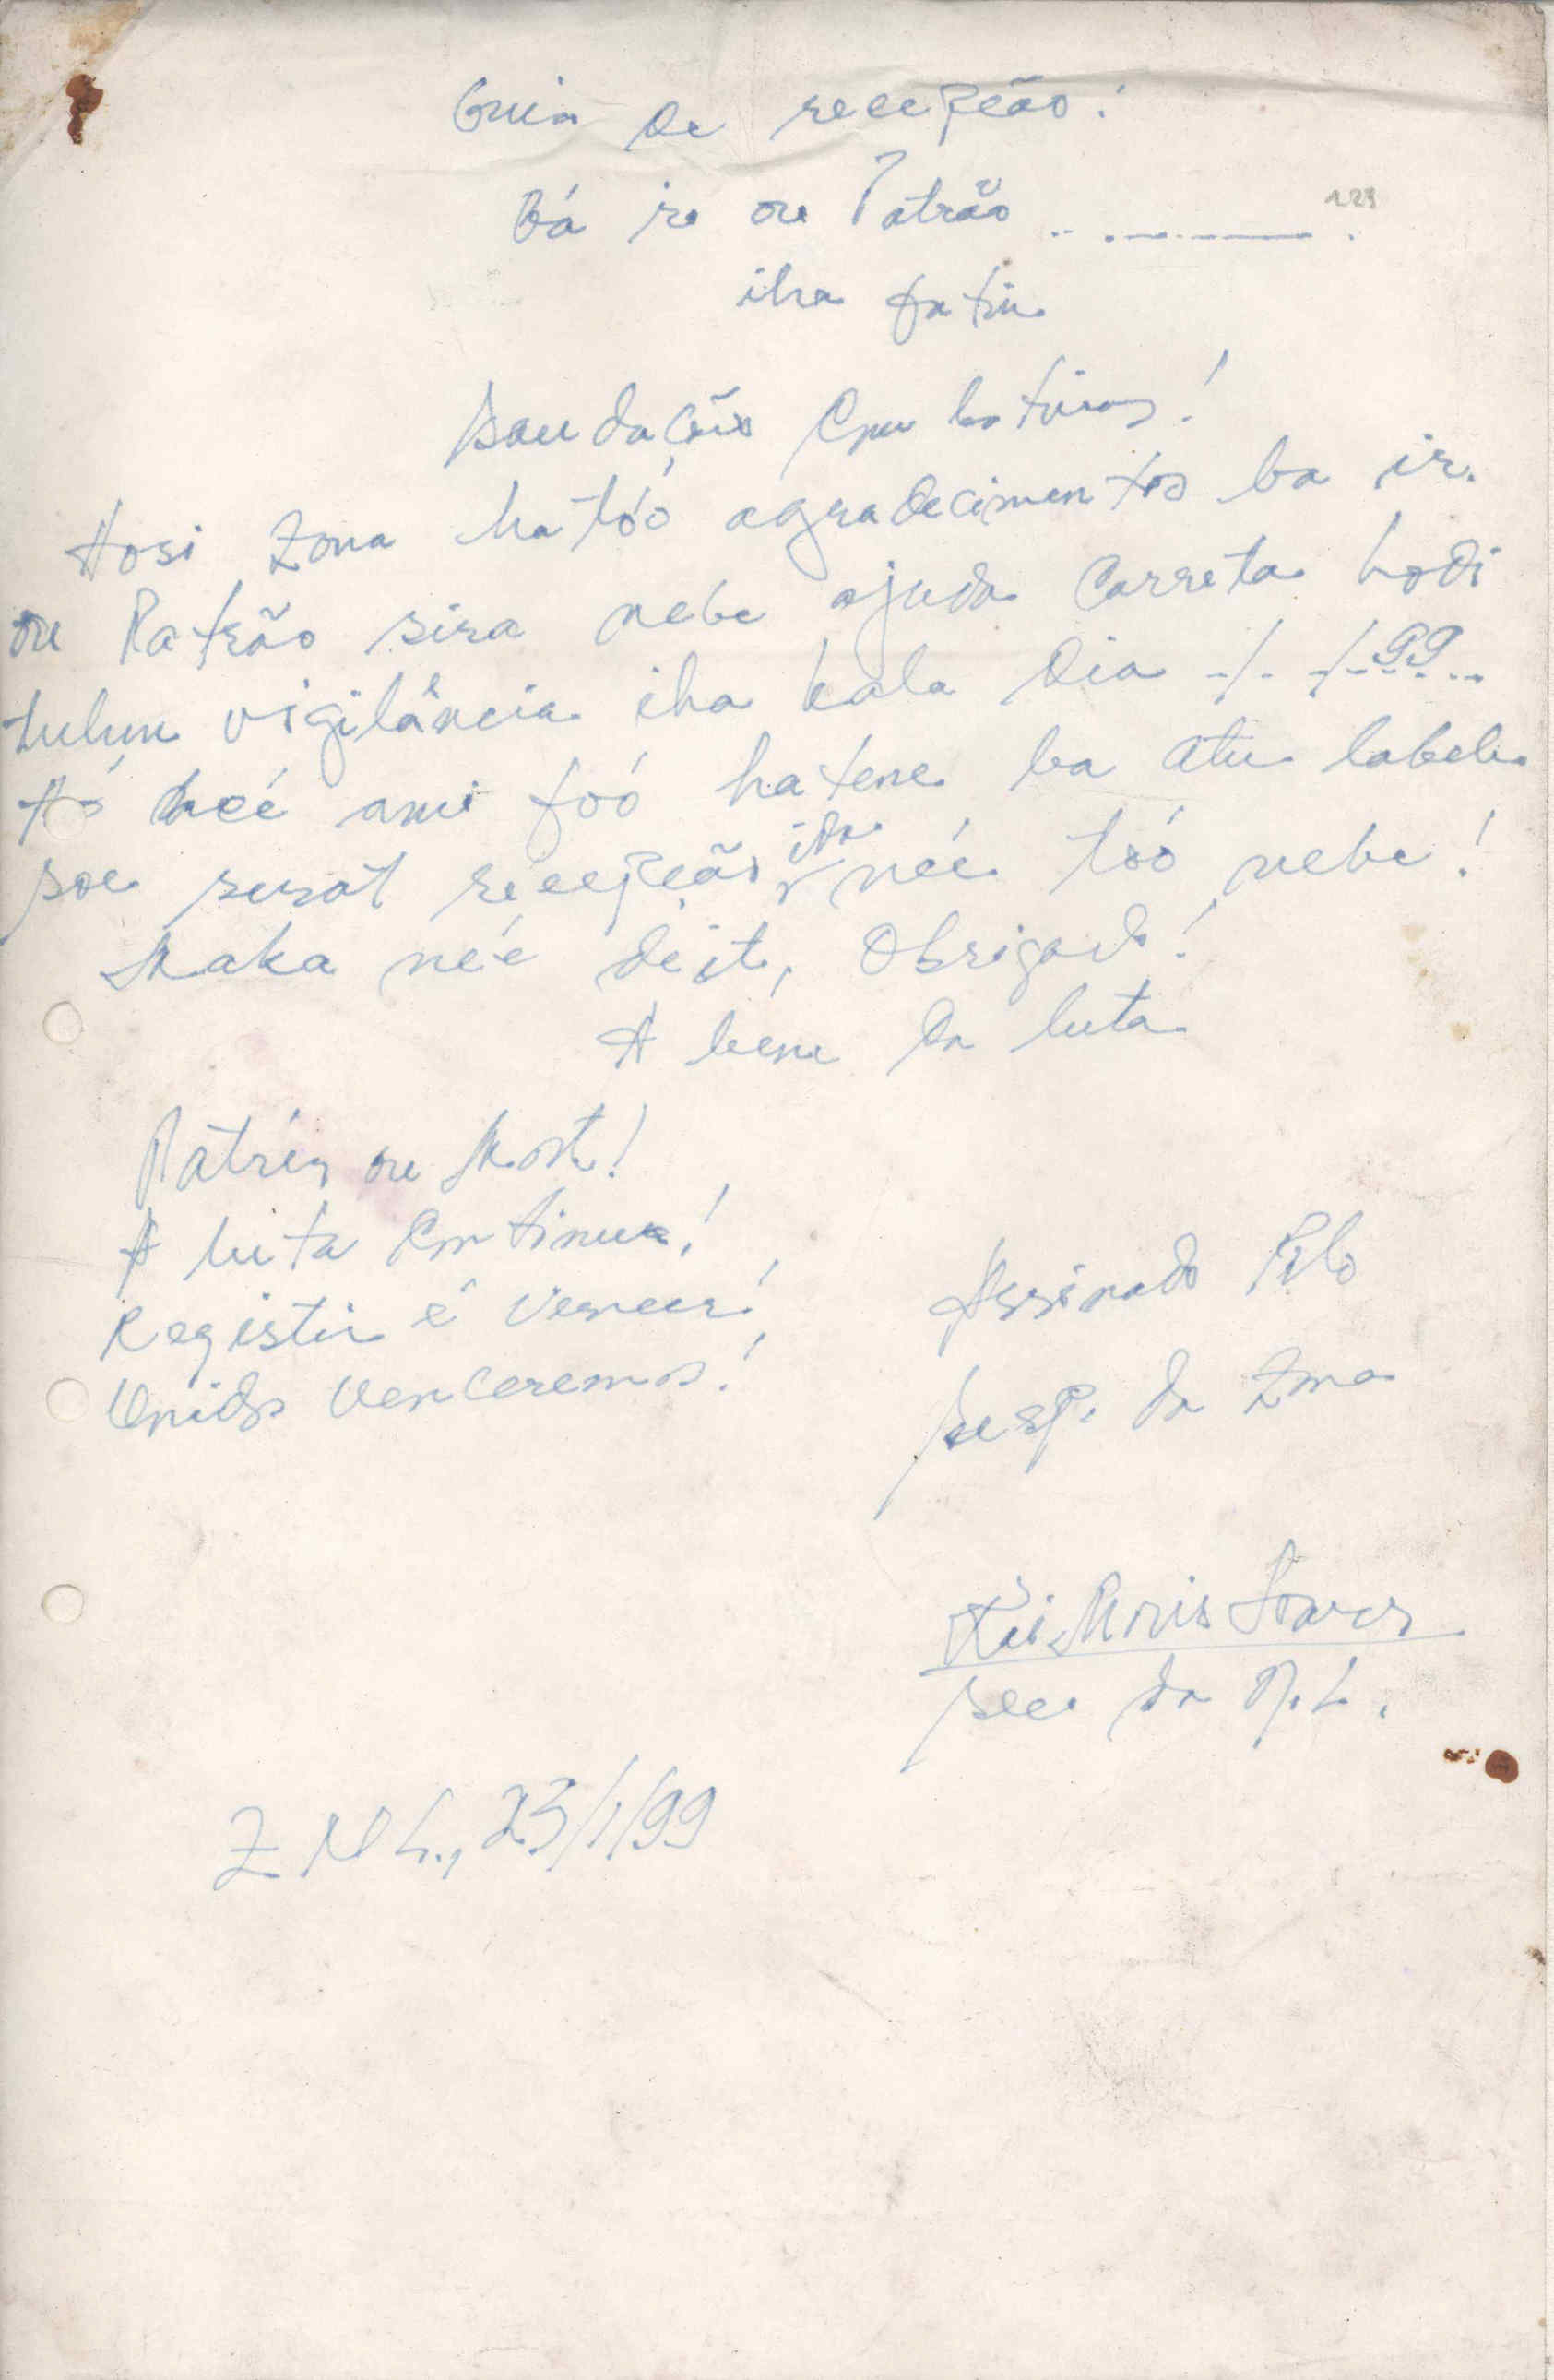 Guia de recepção:
Bá ir. ou Patrão .. ............ .
129
iha fatin
Saudações Combativas!
Hosi Zona ható'o agradecimentos ba ir.
ou Patrão sira nebe ajuda Carreta hodi
tulun vigilância iha kala Dia -/- -/-99...
né'é ami fó'ó hatene ba atu labele
soe surat recepção ida né'é tó'ó nebe!
Maka né'é deit, Obrigado!
A bém da luta
Pátria ou Morte!
A luta Continua!
Registir é Vencer!
Unidos Venceremos!
Assinado Pelo
Resp. da Zona
Sec. da
Z N L., 23/1/99